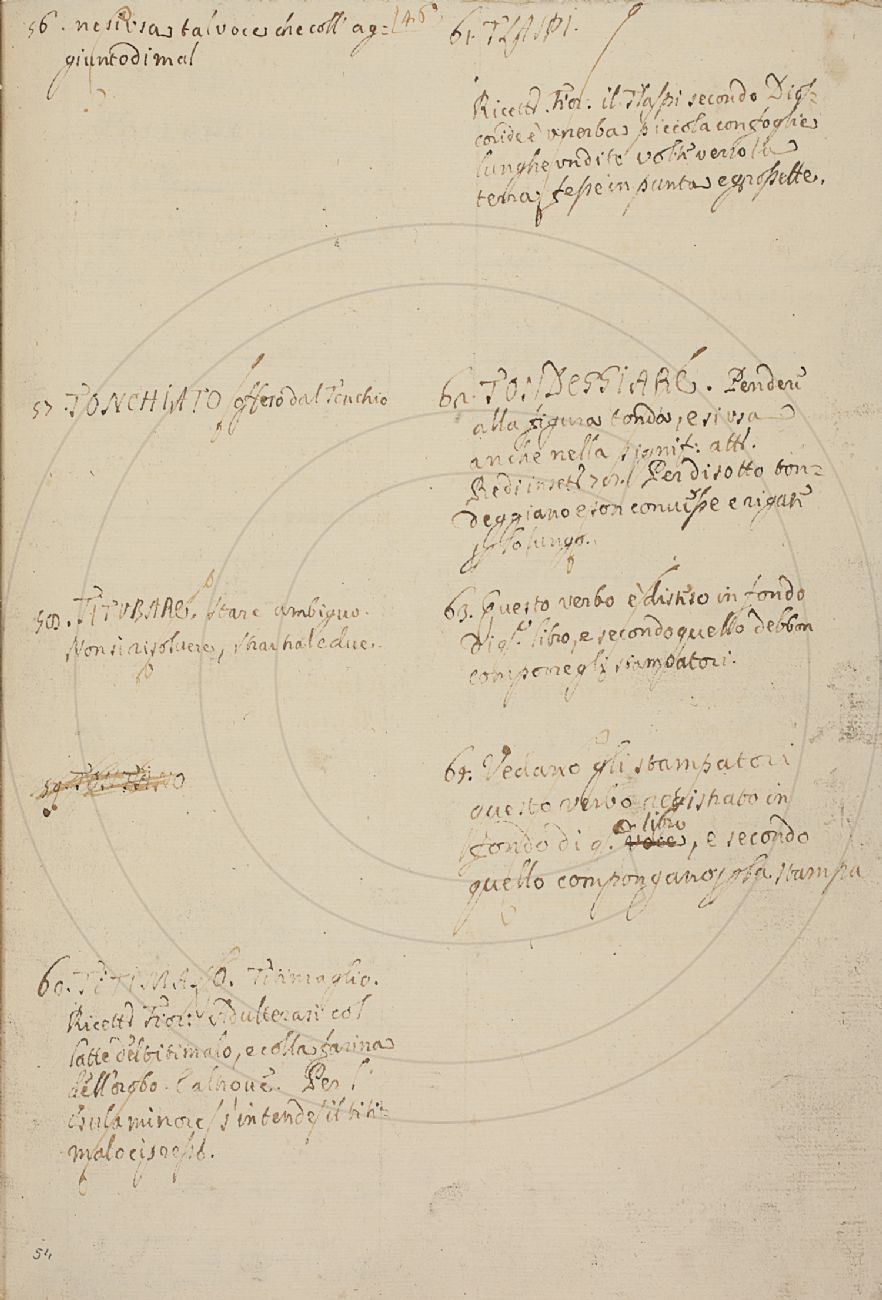 56. ne si usa tal voce che coll' ag= 146
giunto di mal
57. TONCHIATO offeso dal Tonchio
58. TITUBARE. Stare ambiguo.
Non si risolvere, star tra le due.
59.
60. TITIMALO. Titimaglio.
Ricett. Fior. Adulterasi col
latte del titimalo, e colla farina
dell'orobo. altrove. Per l'
Esula minore s'intende il titi=
malo cipress.
61. TLASPI.
Ricett. Fior. il Tlaspi secondo Dios=
coride è un erba piccola con foglie
lunghe un dito volte verso la
terra, fesse in punta e grossette.
62. TONDEGGIARE. Pendere
alla figura tonda, e si usa
anche nella signif. att.
Redi insett. Per di sotto ton=
deggiano e son convesse e rigate
lungo.
63. Questo verbo è disteso in fondo
di q.o libro, e secondo quello debbon
comporre gli stampatori.
64. Vedano gli stampatori
questo verbo registrato in
fondo di q. libro, e secondo
quello compongano la stampa
54